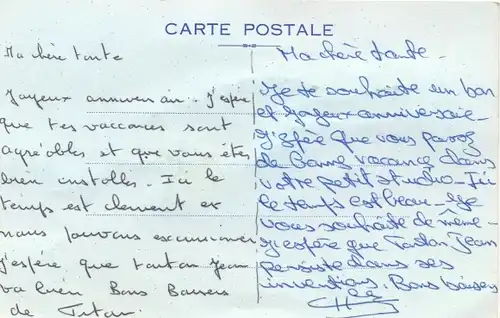 CARTE POSTALE
Ma chère tante
Joyeux anniversaire. J'espère
que tes vaccances sont
agréables et que vous êtes
bien installés. Ici le
temps est clement et
nous pouvons excursionner
j'espère que tonton Jean
va bien. Bons Baisers
de
Ma chère tante.
Je te souhaite un bon
et joyeux anniversaire.
J'espère que vous passez
de bonne vacance dans
votre petit studio. Ici
le temps est beau. Je
vous souhaite de même.
J'espère que Tonton Jean
persiste dans ses
inventions. Bons baisers